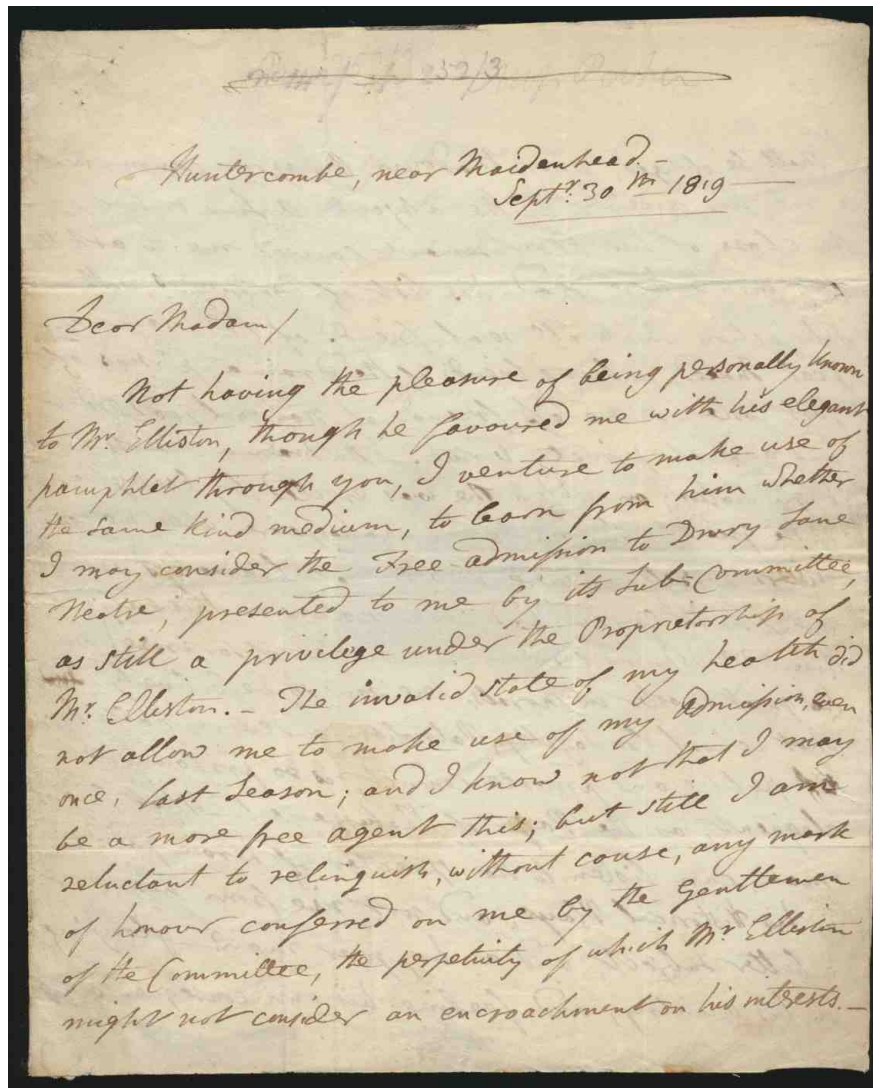 252/3
Huntercombe, near Maidenhead. -
Septr: 30th 1819 —
Dear Madam/
Not having the pleasure of being personally known
to Mr. Elliston, though he favoured me with his elegant
pamphlet through you, I venture to make use of
the same kind medium, to learn from him whether
I may consider the Free admission to Drury Lane
Theatre, presented to me by its Sub-Committee,
as still a privilege under the Proprietorship of
Mr. Elliston. - The invalid state of my health did
not allow me to make use of my admission, even
once, last Season; and I know not that I may
be a more free agent this; but still I am
reluctant to relinquish, without cause, any mark
of honour conferred on me by the Gentlemen
of the Committee, the perpetuity of which Mr Elliston
might not consider an encroachment on his interests. —